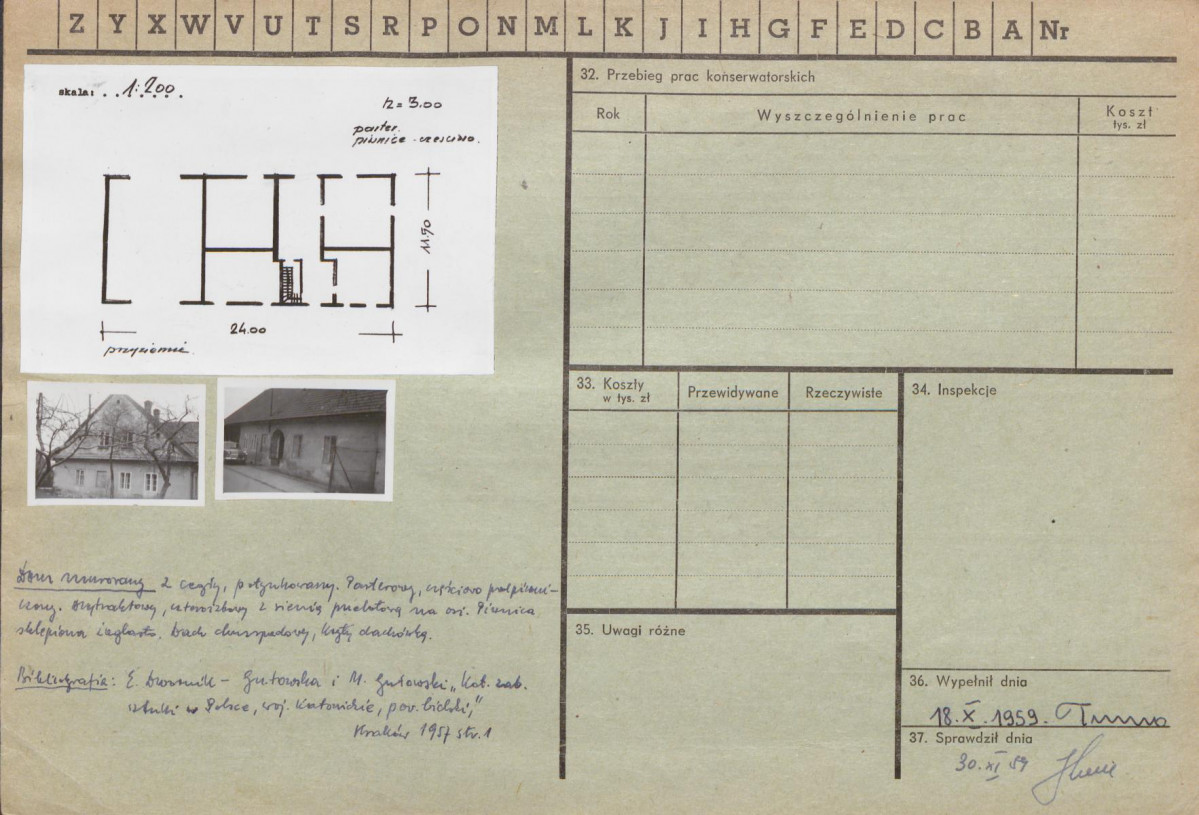 Z Y X W V U T S R P O N M L K J I H G F E D C B A Nr
skala: 1:200
h = 3.00
parter.
piwnice - częściowo.
11.90
24.00
przyziemie
32. Przebieg prac konserwatorskich
Rok
Wyszczególnienie prac
Koszt
tys. zł
33. Koszty
w tys. zł
Przewidywane
Rzeczywiste
34. Inspekcje
35. Uwagi różne
36. Wypełnił dnia
18.X.1959.
37. Sprawdził dnia
30.XI 59
Dom murowany z cegły, potynkowany. Parterowy, częściowo podpiwni-
czony. Dwutraktowy, z sienią przelotową na osi. Piwnica
sklepiona żaglasto. Dach dwuspadowy, kryty dachówką.
Bibliografia: E. Dwornik - Gutowska i M. Gutowski „Kat. zab.
sztuki w Polsce, woj. Katowickie, pow. bielski,"
Kraków 1957 str. 1